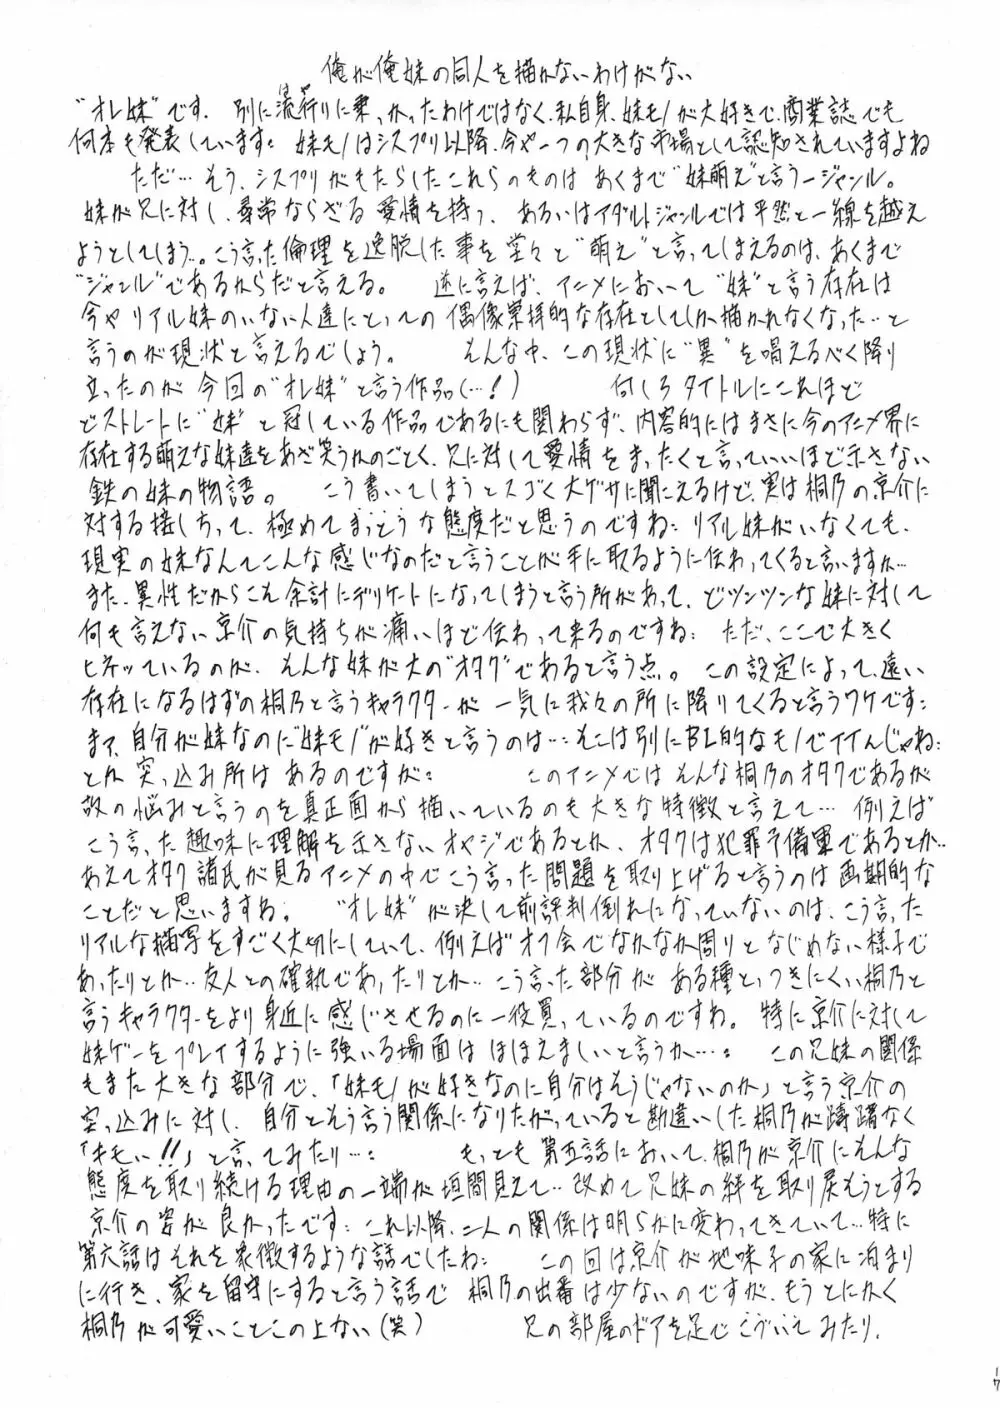 俺が俺妹の同人を描かないわけがない
"オレ妹"です. 別に流行りに乗っかったわけではなく、私自身、妹モノが大好きで、商業誌でも
何本も発表しています: 妹モノはシスプリ以降、今や一つの大きな市場として認知されていますよね
ただ…そう、シスプリがもたらしたこれらのものは あくまで"妹萌え"と言う一ジャンル。
妹が兄に対し、尋常ならざる愛情を持つ、あるいはアダルトジャンルでは平然と一線を越え
ようとしてしまう…。こう言った倫理を逸脱した事を堂々と"萌え"と言ってしまえるのは、あくまで
"ジャンル"であるからだと言える。 逆に言えば、アニメにおいて"妹"と言う存在は
今やリアル妹のいない人達にとっての偶像崇拝的な存在としてしか描かれなくなった…と
言うのが現状と言えるでしょう。 そんな中、この現状に"異"を唱えるべく降り
立ったのが今回の"オレ妹"と言う作品(…!) 何しろタイトルにこれほど
どストレートに"妹"と冠している作品であるにも関わらず、内容的にはまさに今のアニメ界に
存在する萌えな妹達をあざ笑うかのごとく、兄に対して愛情をまったくと言っていいほど示さない
鉄の妹の物語。 こう書いてしまうとスゴく大ゲサに聞こえるけど、実は桐乃の京介に
対する接し方って、極めてまっとうな態度だと思うのですね: リアル妹がいなくても、
現実の妹なんてこんな感じなのだと言うことが手に取るように伝わってくると言いますか…
また、異性だからこそ余計にデリケートになってしまうと言う所があって、どツンツンな妹に対して
何も言えない京介の気持ちが痛いほど伝わって来るのですね: ただ、ここで大きく
ヒネッているのが、そんな妹が大の"オタク"であると言う点。 この設定によって、遠い
存在になるはずの桐乃と言うキャラクターが一気に我々の所に降りてくると言うワケです:
まぁ、自分が妹なのに"妹モノ"が好きと言うのは…そこは別にBL的なモノでイイんじゃね:
とか突っ込み所はあるのですが: このアニメではそんな桐乃のオタクであるが
故の悩みと言うのを真正面から描いているのも大きな特徴と言えて… 例えば
こう言った趣味に理解を示さないオヤジであるとか、オタクは犯罪予備軍であるとか…
あえてオタク諸氏が見るアニメの中でこう言った問題を取り上げると言うのは画期的な
ことだと思いますね。 "オレ妹"が決して前評判倒れになっていないのは、こう言った
リアルな描写をすごく大切にしていて、例えばオフ会でなかなか周りとなじめない様子で
あったりとか…友人との確執であったりとか…こう言った部分がある種とっつきにくい桐乃と
言うキャラクターをより身近に感じさせるのに一役買っているのですね。 特に京介に対して
妹ゲーをプレイするように強いる場面はほほえましいと言うか…: この兄妹の関係
もまた大きな部分で、「妹モノが好きなのに自分はそうじゃないのか」と言う京介の
突っ込みに対し、自分とそう言う関係になりたがっていると勘違いした桐乃が躊躇なく
「キモい!!」と言ってみたり…: もっとも第五話において、桐乃が京介にそんな
態度を取り続ける理由の一端が垣間見えて…改めて兄妹の絆を取り戻そうとする
京介の姿が良かったです: これ以降、二人の関係は明らかに変わってきていて…特に
第六話はそれを象徴するような話でしたね: この回は京介が地味子の家に泊まり
に行き、家を留守にすると言う話で桐乃の出番は少ないのですが、もうとにかく
桐乃が可愛いことこの上ない(笑) 兄の部屋のドアを足でこづいてみたり、
17